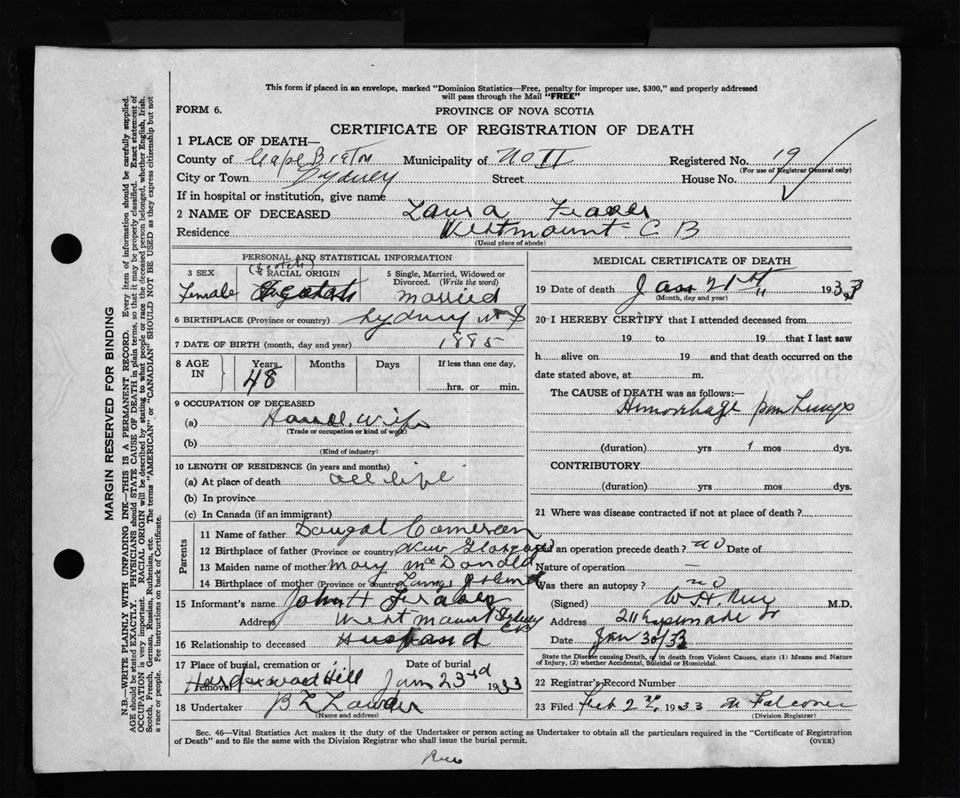 This form if placed in an envelope, marked "Dominion Statistics—Free, penalty for improper use, $300," and properly addressed
will pass through the Mail "FREE"
FORM 6.
PROVINCE OF NOVA SCOTIA
CERTIFICATE OF REGISTRATION OF DEATH
1 PLACE OF DEATH—
County of Cape Breton Municipality of No 11 Registered No. 19
(For use of Registrar General only)
City or Town Sydney Street House No.
If in hospital or institution, give name
2 NAME OF DECEASED Laura Fraser
Residence Westmount C B
(Usual place of abode)
PERSONAL AND STATISTICAL INFORMATION
(Scotch)
3 SEX RACIAL ORIGIN 5 Single, Married, Widowed or
Divorced. (Write the word)
Female Married
6 BIRTHPLACE (Province or country) Sydney N S
7 DATE OF BIRTH (month, day and year) 1885
8 AGE IN Years Months Days If less than one day,
48 hrs. or min.
9 OCCUPATION OF DECEASED
(a) House wife
(Trade or occupation or kind of work)
(b)
(Kind of industry)
10 LENGTH OF RESIDENCE (in years and months)
(a) At place of death all life
(b) In province
(c) In Canada (if an immigrant)
Parents
11 Name of father Dougal Cameron
12 Birthplace of father (Province or country) New Glasgow
13 Maiden name of mother Mary McDonald
14 Birthplace of mother (Province or country)
15 Informant's name John H Fraser
Address Westmount Sydney
CB
16 Relationship to deceased Husband
17 Place of burial, cremation or removal Date of burial
Hardwood Hill Jan 23rd 1933
18 Undertaker
(Name and address)
MEDICAL CERTIFICATE OF DEATH
19 Date of death Jan 21st 1933
(Month, day and year)
20 I HEREBY CERTIFY that I attended deceased from
19 to 19 that I last saw
h alive on 19 and that death occurred on the
date stated above, at m.
The CAUSE OF DEATH was as follows:
Hemorrhage from Lungs
(duration) yrs 1 mos dys.
CONTRIBUTORY
(duration) yrs mos dys.
21 Where was disease contracted if not at place of death?
Did an operation precede death? no Date of
Nature of operation —
Was there an autopsy? no
(Signed) M.D.
Address 211 Esplanade
Date Jan 30/33
State the Disease causing Death, or in death from Violent Causes, state (1) Means and Nature
of Injury, (2) whether Accidental, Suicidal or Homicidal.
22 Registrar's Record Number
23 Filed Feb 2nd 1933 Falconer
(Division Registrar)
Sec. 46—Vital Statistics Act makes it the duty of the Undertaker or person acting as Undertaker to obtain all the particulars required in the "Certificate of Registration
of Death" and to file the same with the Division Registrar who shall issue the burial permit. (OVER)
MARGIN RESERVED FOR BINDING
N.B.—WRITE PLAINLY WITH UNFADING INK—THIS IS A PERMANENT RECORD. Every item of information should be carefully supplied.
AGE should be stated EXACTLY. PHYSICIANS should STATE CAUSE OF DEATH in plain terms, so that it may be properly classified. Exact statement of
OCCUPATION is very important. RACIAL ORIGIN will be described by stating to what people or race the deceased person belonged, whether English, Irish,
Scotch, French, German, Russian, Ruthenian, etc. The terms "AMERICAN" or "CANADIAN" SHOULD NOT BE USED as they express citizenship but not
a race or people. Fee instructions on back of Certificate.